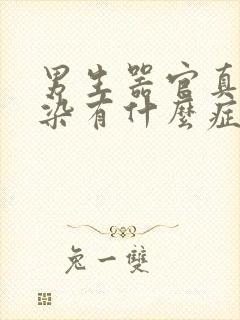 男生器官真
染有什麼症
兔一雙